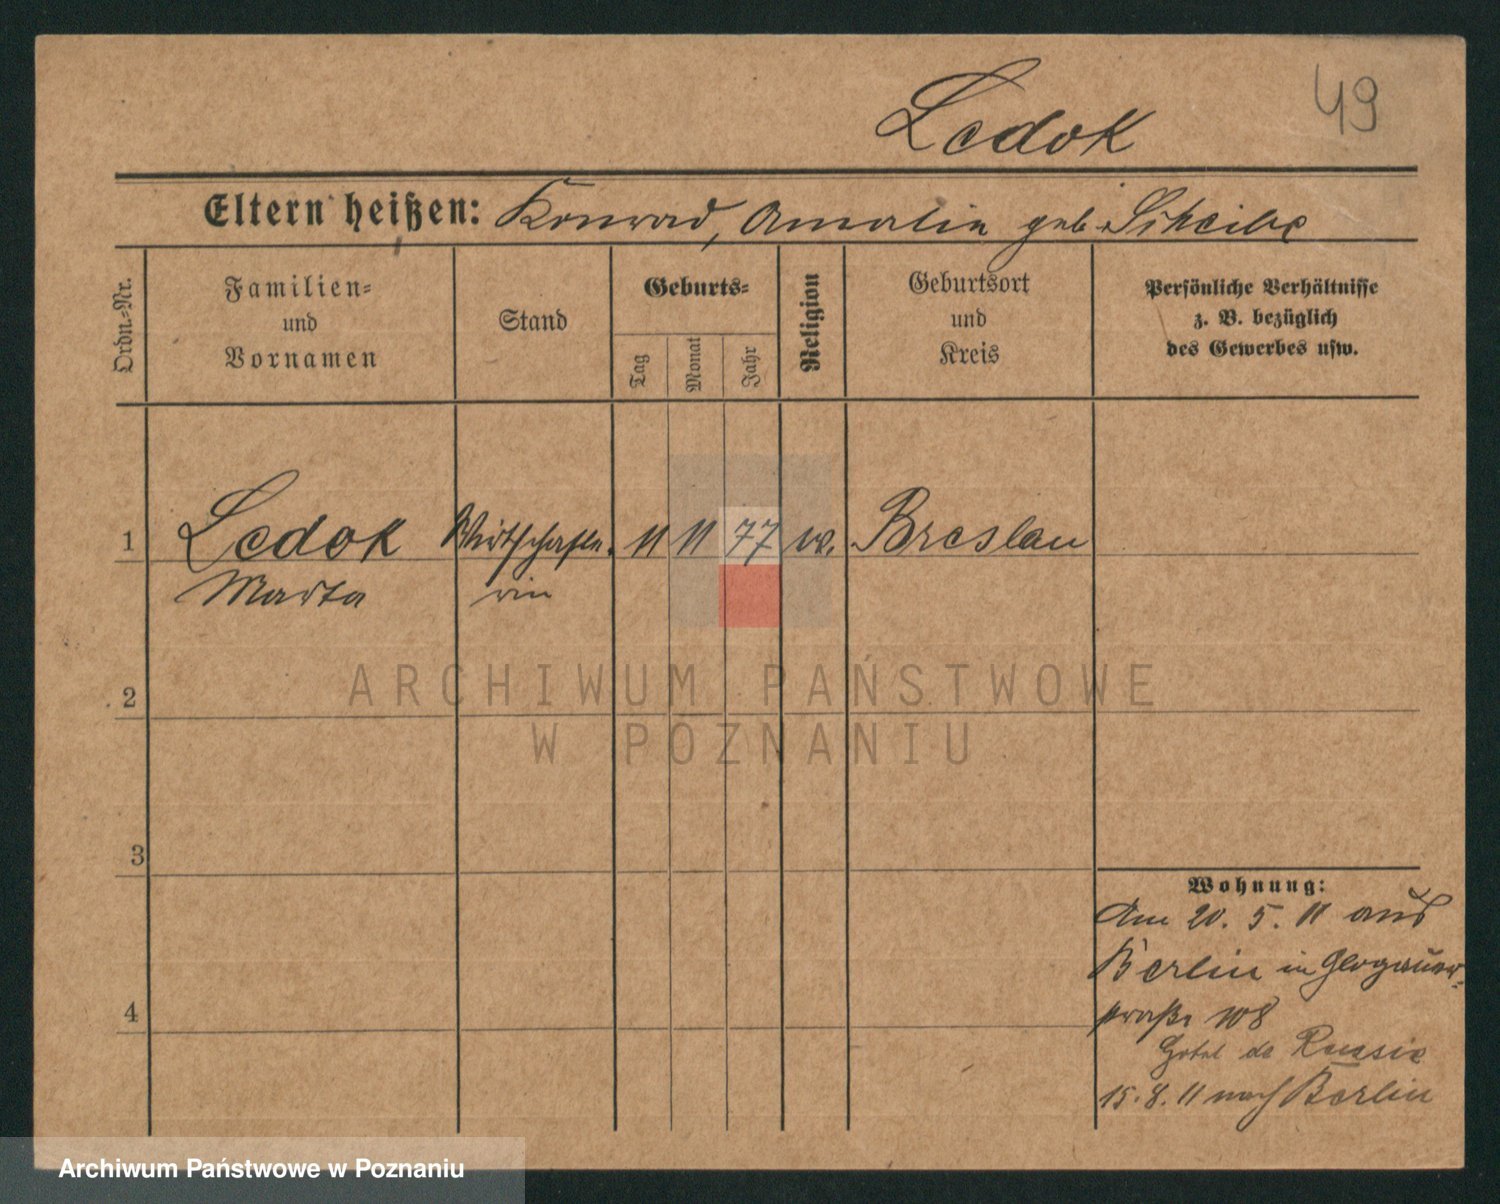 49
Ledok
Eltern heißen: Konrad, Amalie geb. Scheibe
Ordn.-Nr.
Familien-
und
Vornamen
Stand
Geburts-
Tag
Monat
Jahr
Religion
Geburtsort
und
Kreis
Persönliche Verhältnisse
z. B. bezüglich
des Gewerbes usw.
1 Ledok Wirtschafte- 11 11 77 Breslau
Marta rin
ARCHIWUM PAŃSTWOWE
W POZNANIU
2
3
4
Wohnung:
Am 20. 5. 11 aus
Berlin in Glogauer-
straße 108
Hotel de Russie
15. 8. 11 nach Berlin
Archiwum Państwowe w Poznaniu